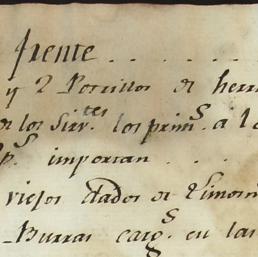 frente . . . . .
y 2 Potrillos de herr
de los Sirv.tes los prim.s a 18
p.s importan . . .
viejos dados de Limosn
Burras carg.s en las